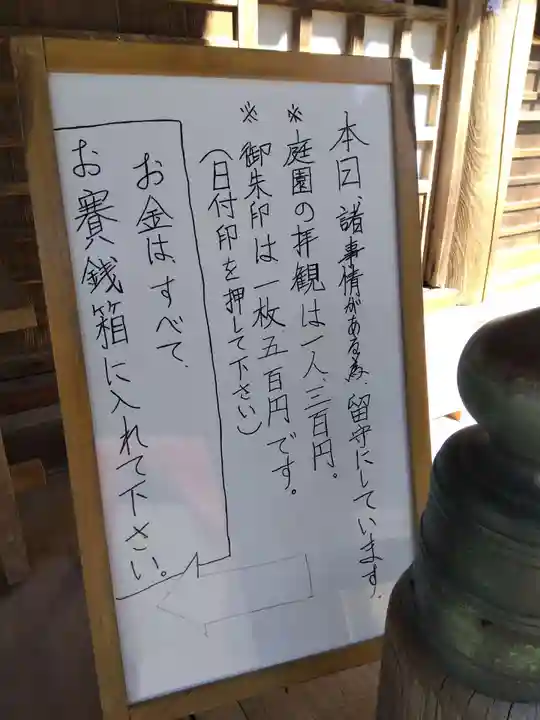 本日、諸事情がある為、留守にしています。
※庭園の拝観は一人、三百円。
※御朱印は一枚五百円です。
(日付印を押して下さい)
お金は、すべて、
お賽銭箱に入れて下さい。